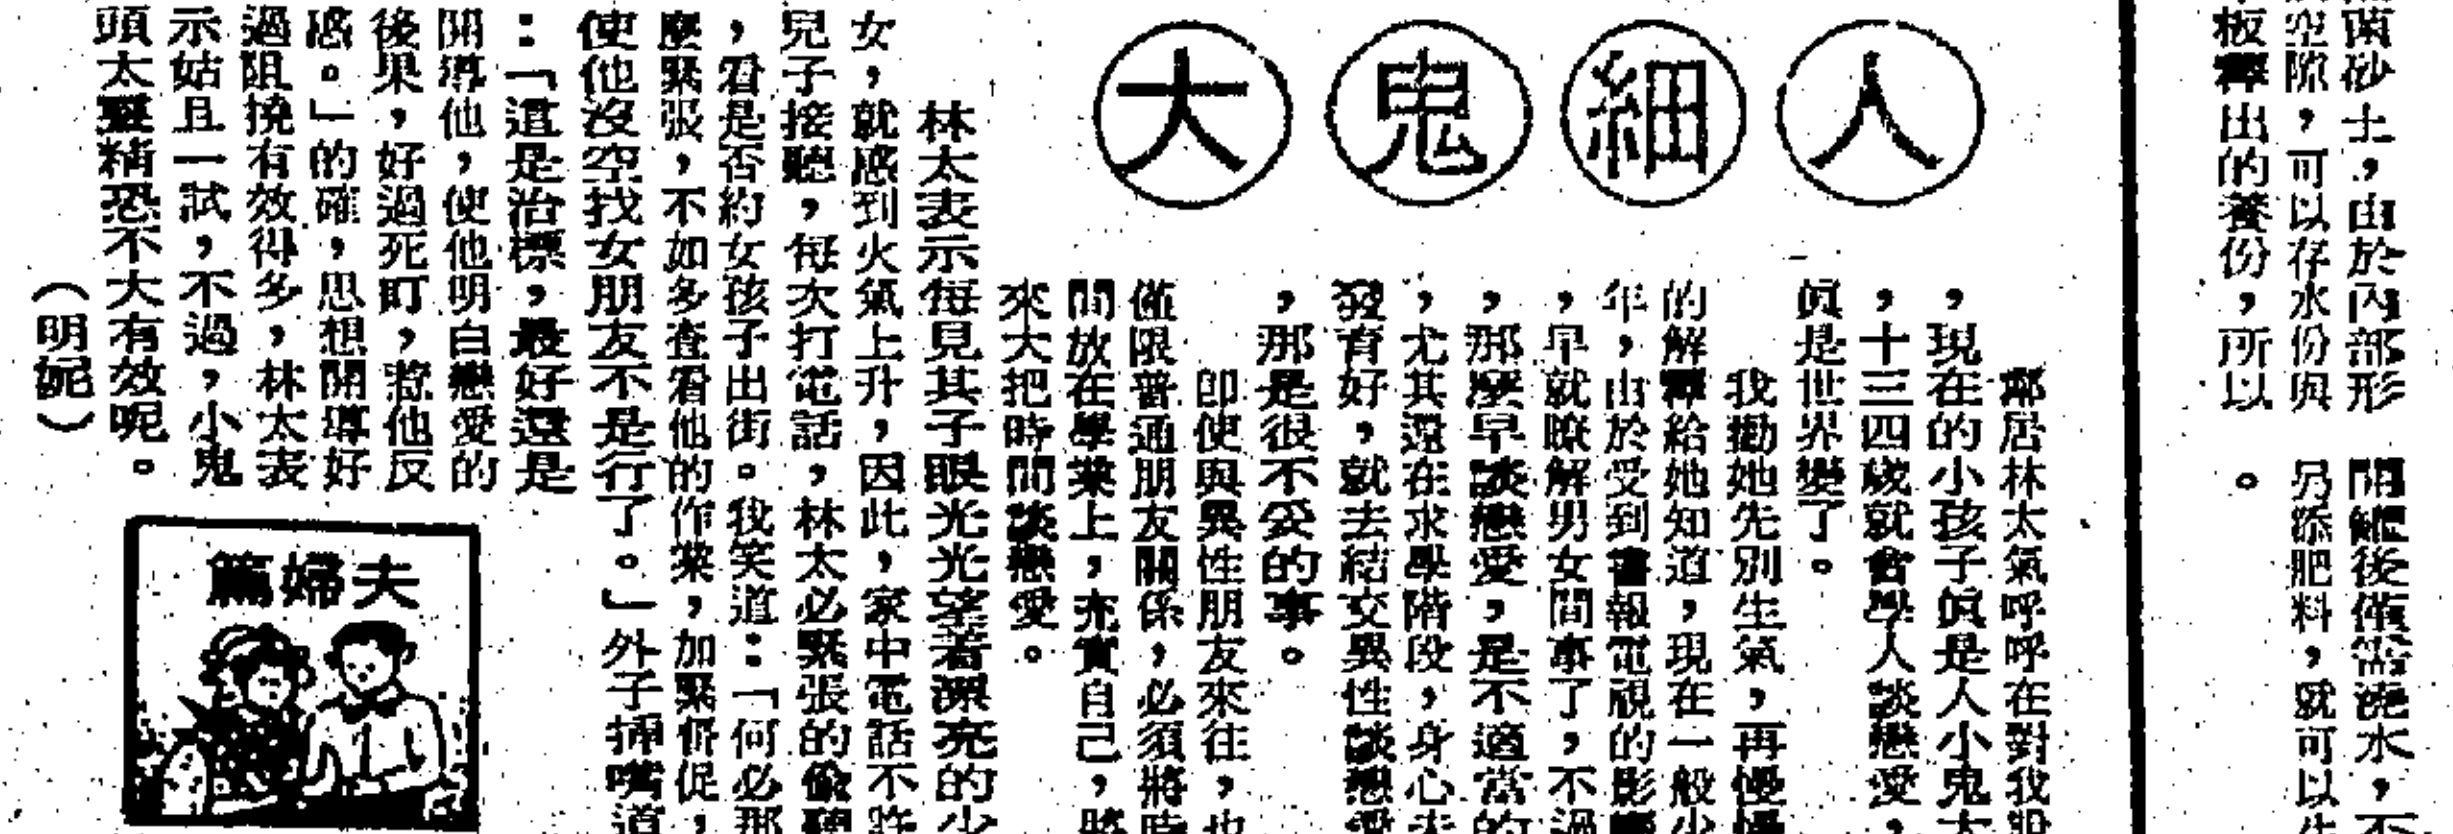 菌砂土，由於內部形
空隙，可以存水份與
板釋出的養份，所以
開罐後僅需澆水，不
另添肥料，就可以生
。
人細鬼大
鄰居林太氣呼呼在對我說
，現在的小孩子眞是人小鬼大
，十三四歲就會學人談戀愛，
眞是世界變了。
我勸她先別生氣，再慢慢
的解釋給她知道，現在一般少
年，由於受到書報電視的影響
，早就瞭解男女間事了，不過
，那麼早談戀愛，是不適當的
，尤其還在求學階段，身心未
發育好，就去結交異性談戀愛
，那是很不妥的事。
卽使與異性朋友來往，也
僅限普通朋友關係，必須將時
間放在學業上，充實自己，將
來大把時間談戀愛。
林太表示每見其子眼光光望著漂亮的少
女，就感到火氣上升，因此，家中電話不許
兒子接聽，每次打電話，林太必緊張的偷聽
，看是否約女孩子出街。我笑道：「何必那
麼緊張，不如多查看他的作業，加緊督促，
使他沒空找女朋友不是行了。」外子插嘴道
：「這是治標，最好還是
開導他，使他明白戀愛的
後果，好過死盯，惹他反
感。」的確，思想開導好
過阻撓有效得多，林太表
示姑且一試，不過，小鬼
頭太精恐不大有效呢。
（明妮）
夫婦篇